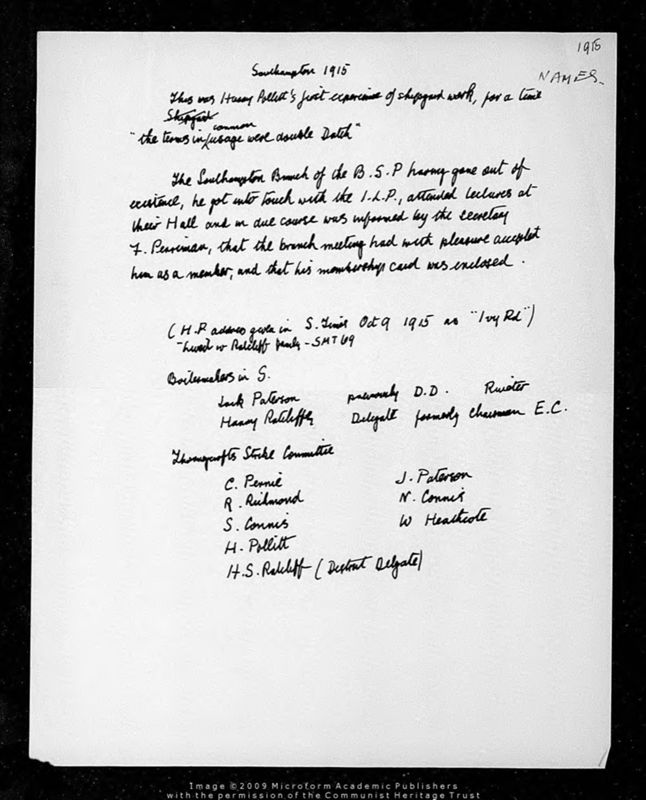 1915
NAMES.
Southampton 1915
This was Harry Pollitt's first experience of shipyard work, for a time
Shipyard
common
"the terms in usage were double Dutch"
The Southampton Branch of the B.S.P having gone out of
existence, he got into touch with the I.L.P., attended lectures at
their Hall and in due course was informed by the secretary
F. Perriman, that the branch meeting had with pleasure accepted
him as a member, and that his membership card was enclosed.
(H.P address given in S. Times Oct 9 1915 as "Ivy Rd")
Lived w Ratcliff family - SMT 69
Boilermakers in S.
Jack Paterson previously D.D. Riveter
Harry Ratcliffe Delegate formerly Chairman E.C.
Thornycrofts Strike Committee
C. Pernie J. Paterson
R. Richmond N. Connis
S. Connis W Heathcote
H. Pollitt
H.S. Ratcliff (District Delegate)
Image ©2009 Microform Academic Publishers
with the permission of the Communist Heritage Trust